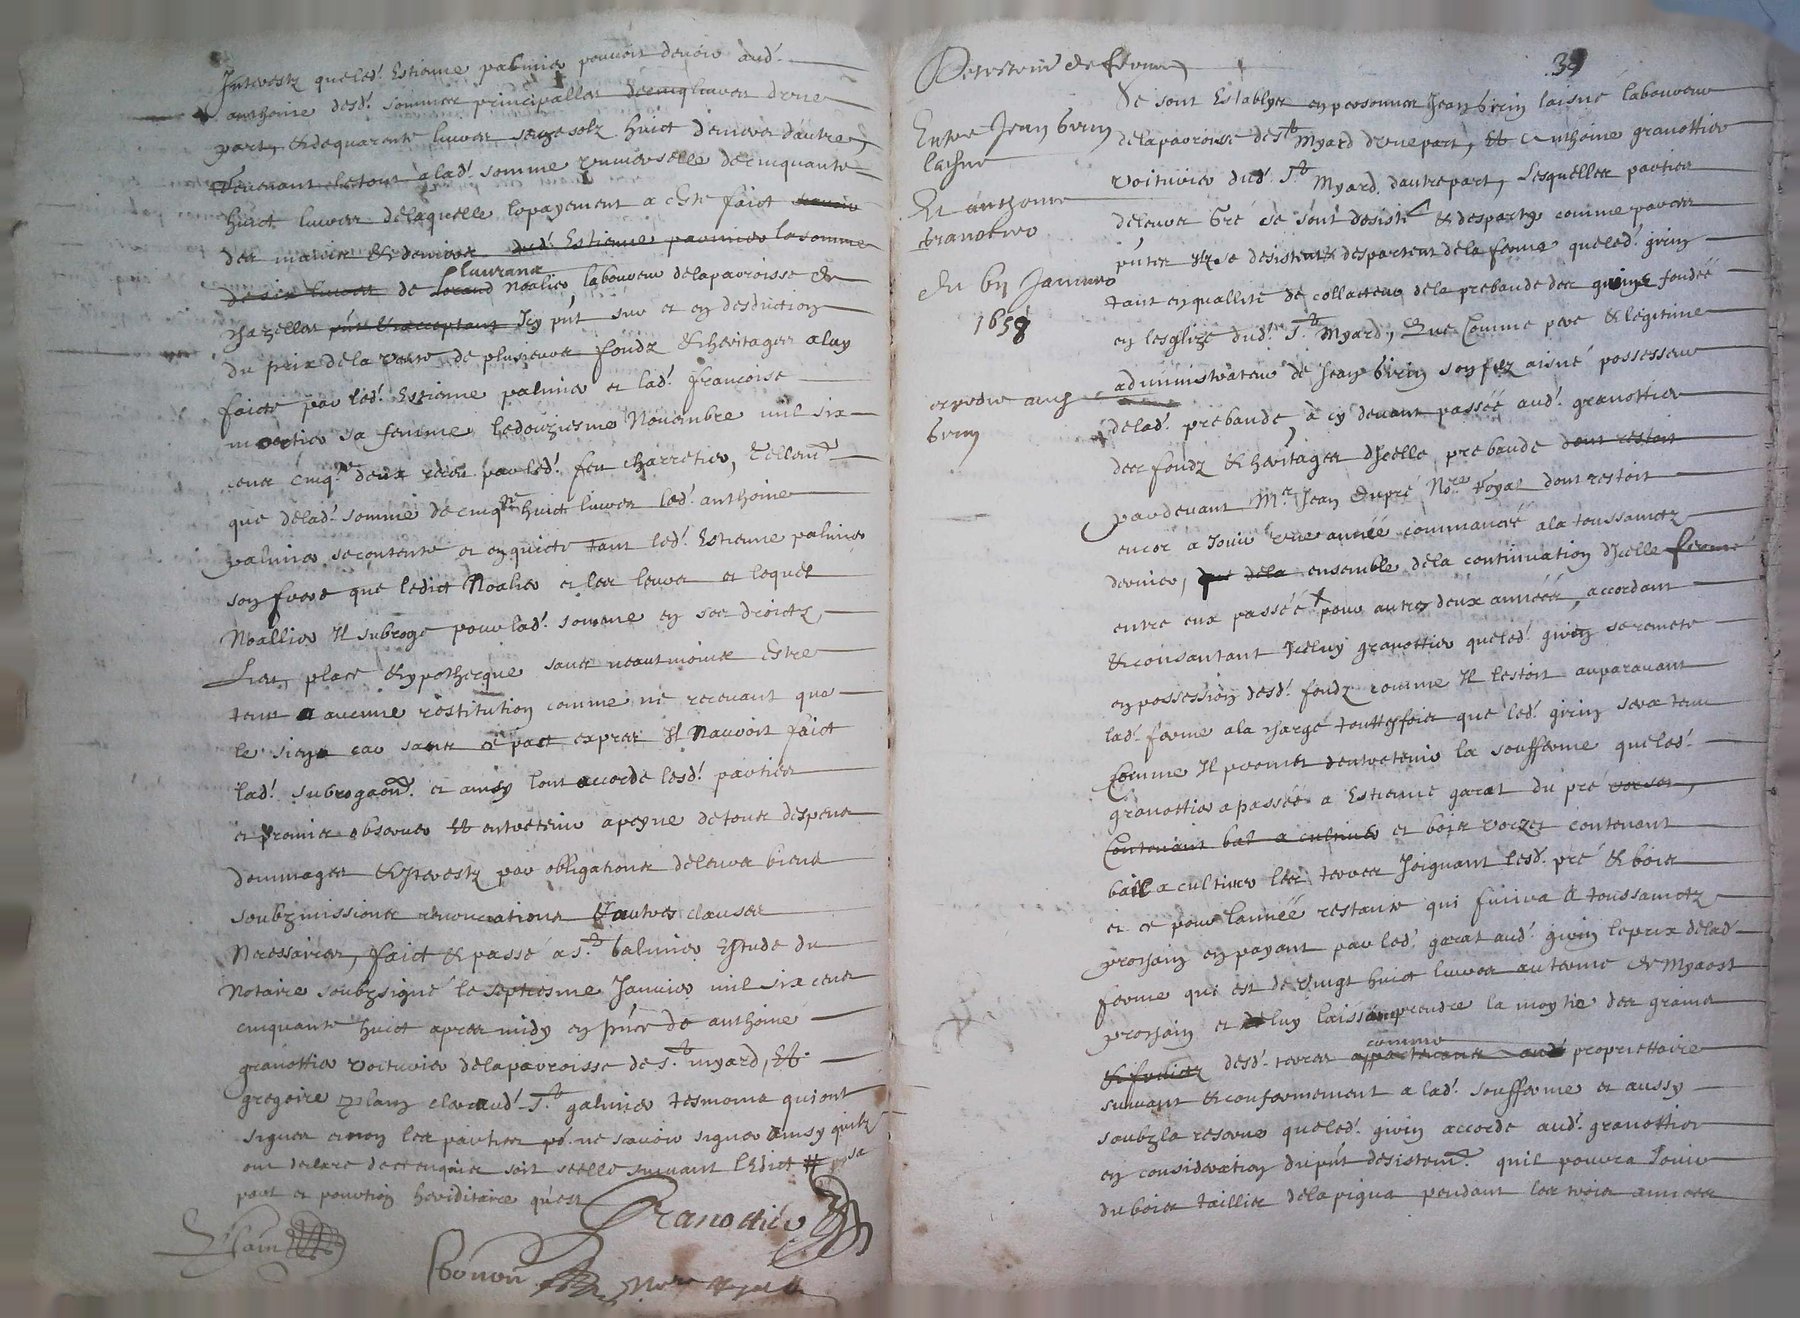 Interestz que led. Estienne palmier pouvoit devoir aud.
anthoine desd. sommes principalles de cinq livres d'une
part, & de quarante livres seize solz huict deniers d'autre,
Revenant le tout a lad. somme universelle de cinquante
huict livres de laquelle le payement a esté faict
des maitre & deniers dud. Estienne parmier la somme
laurans
de six livres de Noalier laboureur de la parroisse de
chazelles pnt & acceptant Icy pnt sur et en desduction
du prix de la vente de plusieurs fondz & heritages a luy
faicte par led. Estienne palmier et lad. françoise
mortier sa femme le douziesme Novembre mil six
cent cinqte deux receu par led. feu charretier, Tellemt
que de lad. somme de cinqte huict livres led. anthoine
palmier se contente et en quicte tant led. Estienne palmier
son frere que ledict Noalier et les leurs et lequel
Noallier Il subroge pour lad. somme en ses droictz
Lieu, place & ypothecque sans neautmoins Estre
tenu a aucune restitution comme ne recevant que
le sien car sans ce pact expres Il n'auroit faict
lad. subrogaon. et ainsy l'ont accordé lesd. parties
et promis observer & entretenir a peyne de tous despens
dommages & Interestz par obligations de leurs biens
soubzmissions renonciations & autres clauses
Necessaires, faict & passé a St. galmier Estude du
Notaire soubzsigné le septiesme Janvier mil six cens
cinquante huict apres midy en pnce de anthoine
granottier voiturier de la parroisse de St. myard, &
gregoire plain clerc aud. St. galmier tesmoins qui ont
signes et non les parties po. ne scavoir signer ainsy quilz
ont declaré de ce enquis soit seellé suivant l'Edict # sa
part et portion hereditaire qu'est
Granottier
Plain
Nore Royal
39
Desisteme de ferme
Entre Jean girin
laisné
Et anthoine
Granottier
du 6e Janvier
1658
expedie aud.
girin
Se sont Establys en personnes Jean girin laisné laboureur
de la parroisse de St Myard d'une part, & Anthoine granottier
voiturier dud. St Myard d'autre part, Lesquelles parties
de leurs gré se sont desisté & despartys comme par ces
pntes Ilz se desistent & despartent de la ferme que led. girin
tant en quallité de collateur de la prebande des girins fondée
en lesglize dud. St. Myard, Que Comme pere & legitime
administrateur de Jean Girin son filz aisné possesseur
de lad. prebande, a cy devant passée aud. granottier
des fondz & heritages d'Icelle prebande dont restoit
par devant Mr Jean dupré Nore Royal dont restoit
encor a Jouir une année commancée a la toussainctz
dernier, que de la ensemble de la continuation d'Icelle ferme
entre eux passée pour autres deux années, accordant
& consantant Iceluy granottier que led. girin se remete
en possession desd. fondz comme Il lestoit auparavant
lad. ferme a la charge touttesfois que led. girin sera tenu
Comme Il promet d'entretenir la soufferme que led.
granottier a passée a Estienne garat du pré
Contenant bal a cultiver et bois verzer contenant
bail a cultiver les terres Joignant lesd. pré & bois
et ce pour lannéé restante qui finira a toussainctz
prochain en payant par led. garat aud. girin le prix de lad.
ferme qui est de vingt huict livres au terme de Myaost
prochain et de luy laisser prendre la moytie des grains
comme
& fruictz desd. terres appartenant aud. propriettaire
suivant & conformement a lad. soufferme et aussy
soubz la reserve que led. girin accorde aud. granottier
en consideration du pnt desistemt. quil pourra Jouir
du bois taillis de la pigua pendant les trois années